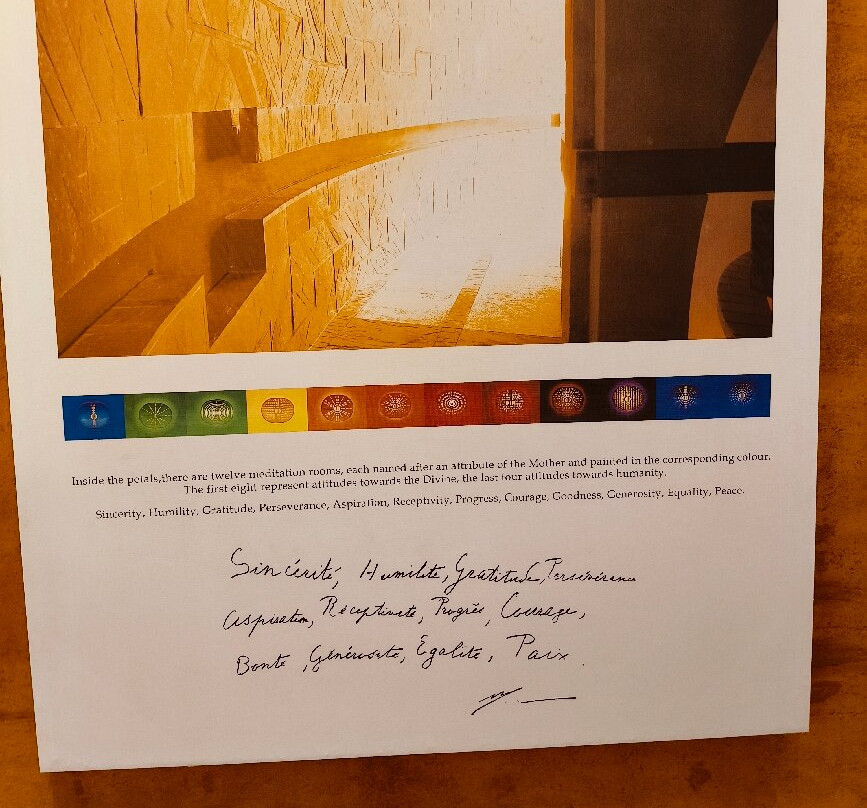 Inside the petals,there are twelve meditation rooms, each named after an attribute of the Mother and painted in the corresponding colour.
The first eight represent attitudes towards the Divine, the last four attitudes towards humanity.
Sincerity, Humility, Gratitude, Perseverance, Aspiration, Receptivity, Progress, Courage, Goodness, Generosity, Equality, Peace.
Sincérité, Humilité, Gratitude, Persévérance
Aspiration, Réceptivité, Progrès, Courage,
Bonté, Générosité, Égalité, Paix.